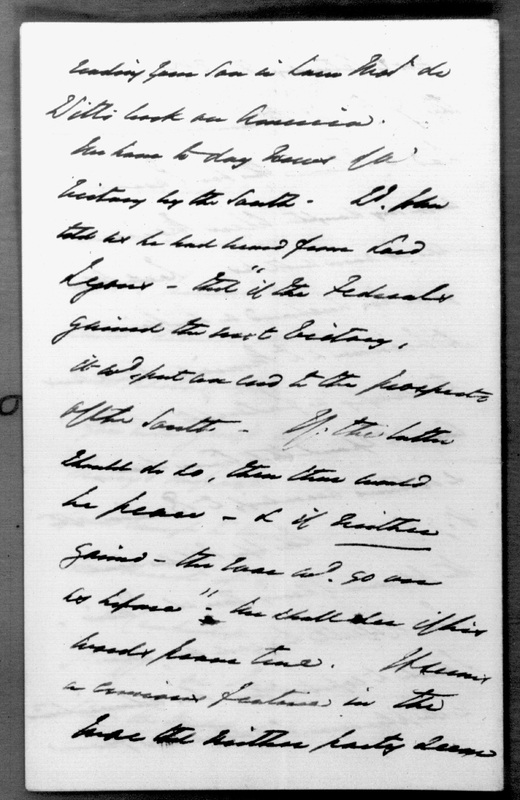 reading your Son in Law Mos^r de
Witt's book on America.
We have to day News of a
Victory by the South - L^d. John
told us he had heard from Lord
Lyons - that "if the Federals
gained the next Victory,
it w^d put an end to the prospects
of the South. - If the latter
should do so, then there would
be peace - & if neither
gains - the War w^d. go on
as before" - We shall see if his
words prove true. It seems
a curious feature in the
War that neither party seem